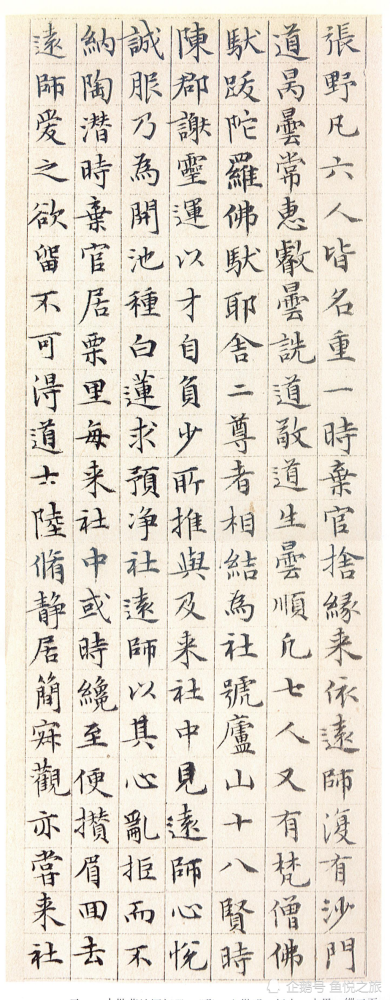 張野凡六人皆名重一時棄官捨緣来依遠師復有沙門
道昺曇常惠叡曇詵道敬道生曇順凡七人又有梵僧佛
馱跋陀羅佛馱耶舍二尊者相結為社號廬山十八賢時
陳郡謝靈運以才自負少所推與及来社中見遠師心悅
誠服乃為開池種白蓮求預净社遠師以其心亂拒而不
納陶潛時棄官居栗里每来社中或時纔至便攢眉回去
遠師愛之欲留不可得道士陸脩静居簡寂觀亦嘗来社
企鹅号 鱼悦之旅